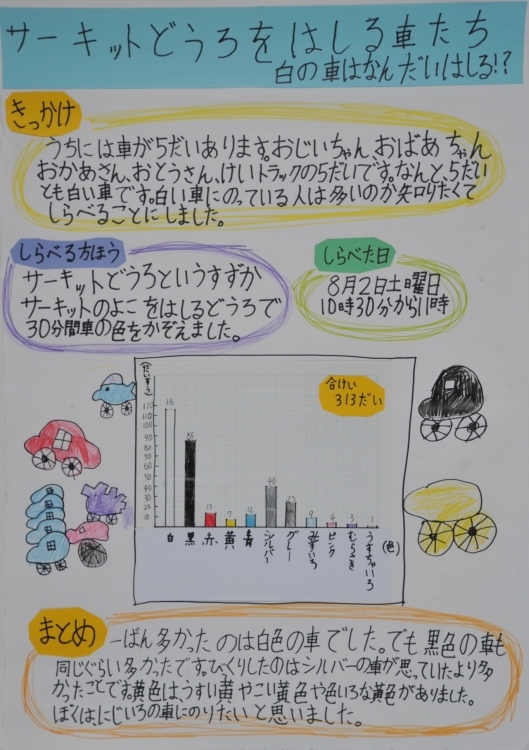 サーキットどうろをはしる車たち
白の車はなんだいはしる!?
きっかけ
うちには車が5だいあります。おじいちゃん おばあちゃん
おかあさん、おとうさん、けいトラックの5だいです。なんと、5だい
とも白い車です。白い車にのっている人は多いのか知りたくて
しらべることにしました。
しらべる方ほう
サーキットどうろというすずか
サーキットのよこをはしるどうろで
30分間車の色をかぞえました。
しらべた日
8月2日土曜日
10時30分から11時
(だいすう)
合けい
313だい
120
110
100
90
80
70
60
50
40
30
20
116
85
13
7
12
40
23
9
4
3
1
白
黒
赤
黄
青
シルバー
グレー
みずいろ
ピンク
むらさき
うすちゃいろ
(色)
まとめ
一ばん多かったのは白色の車でした。でも黒色の車も
同じぐらい多かったです。びくりしたのはシルバーの車が思っていたより多
かったことです。黄色は、うすい黄やこい黄色や色いろな黄色がありました。
ぼくは、にじいろの車にのりたいと思いました。